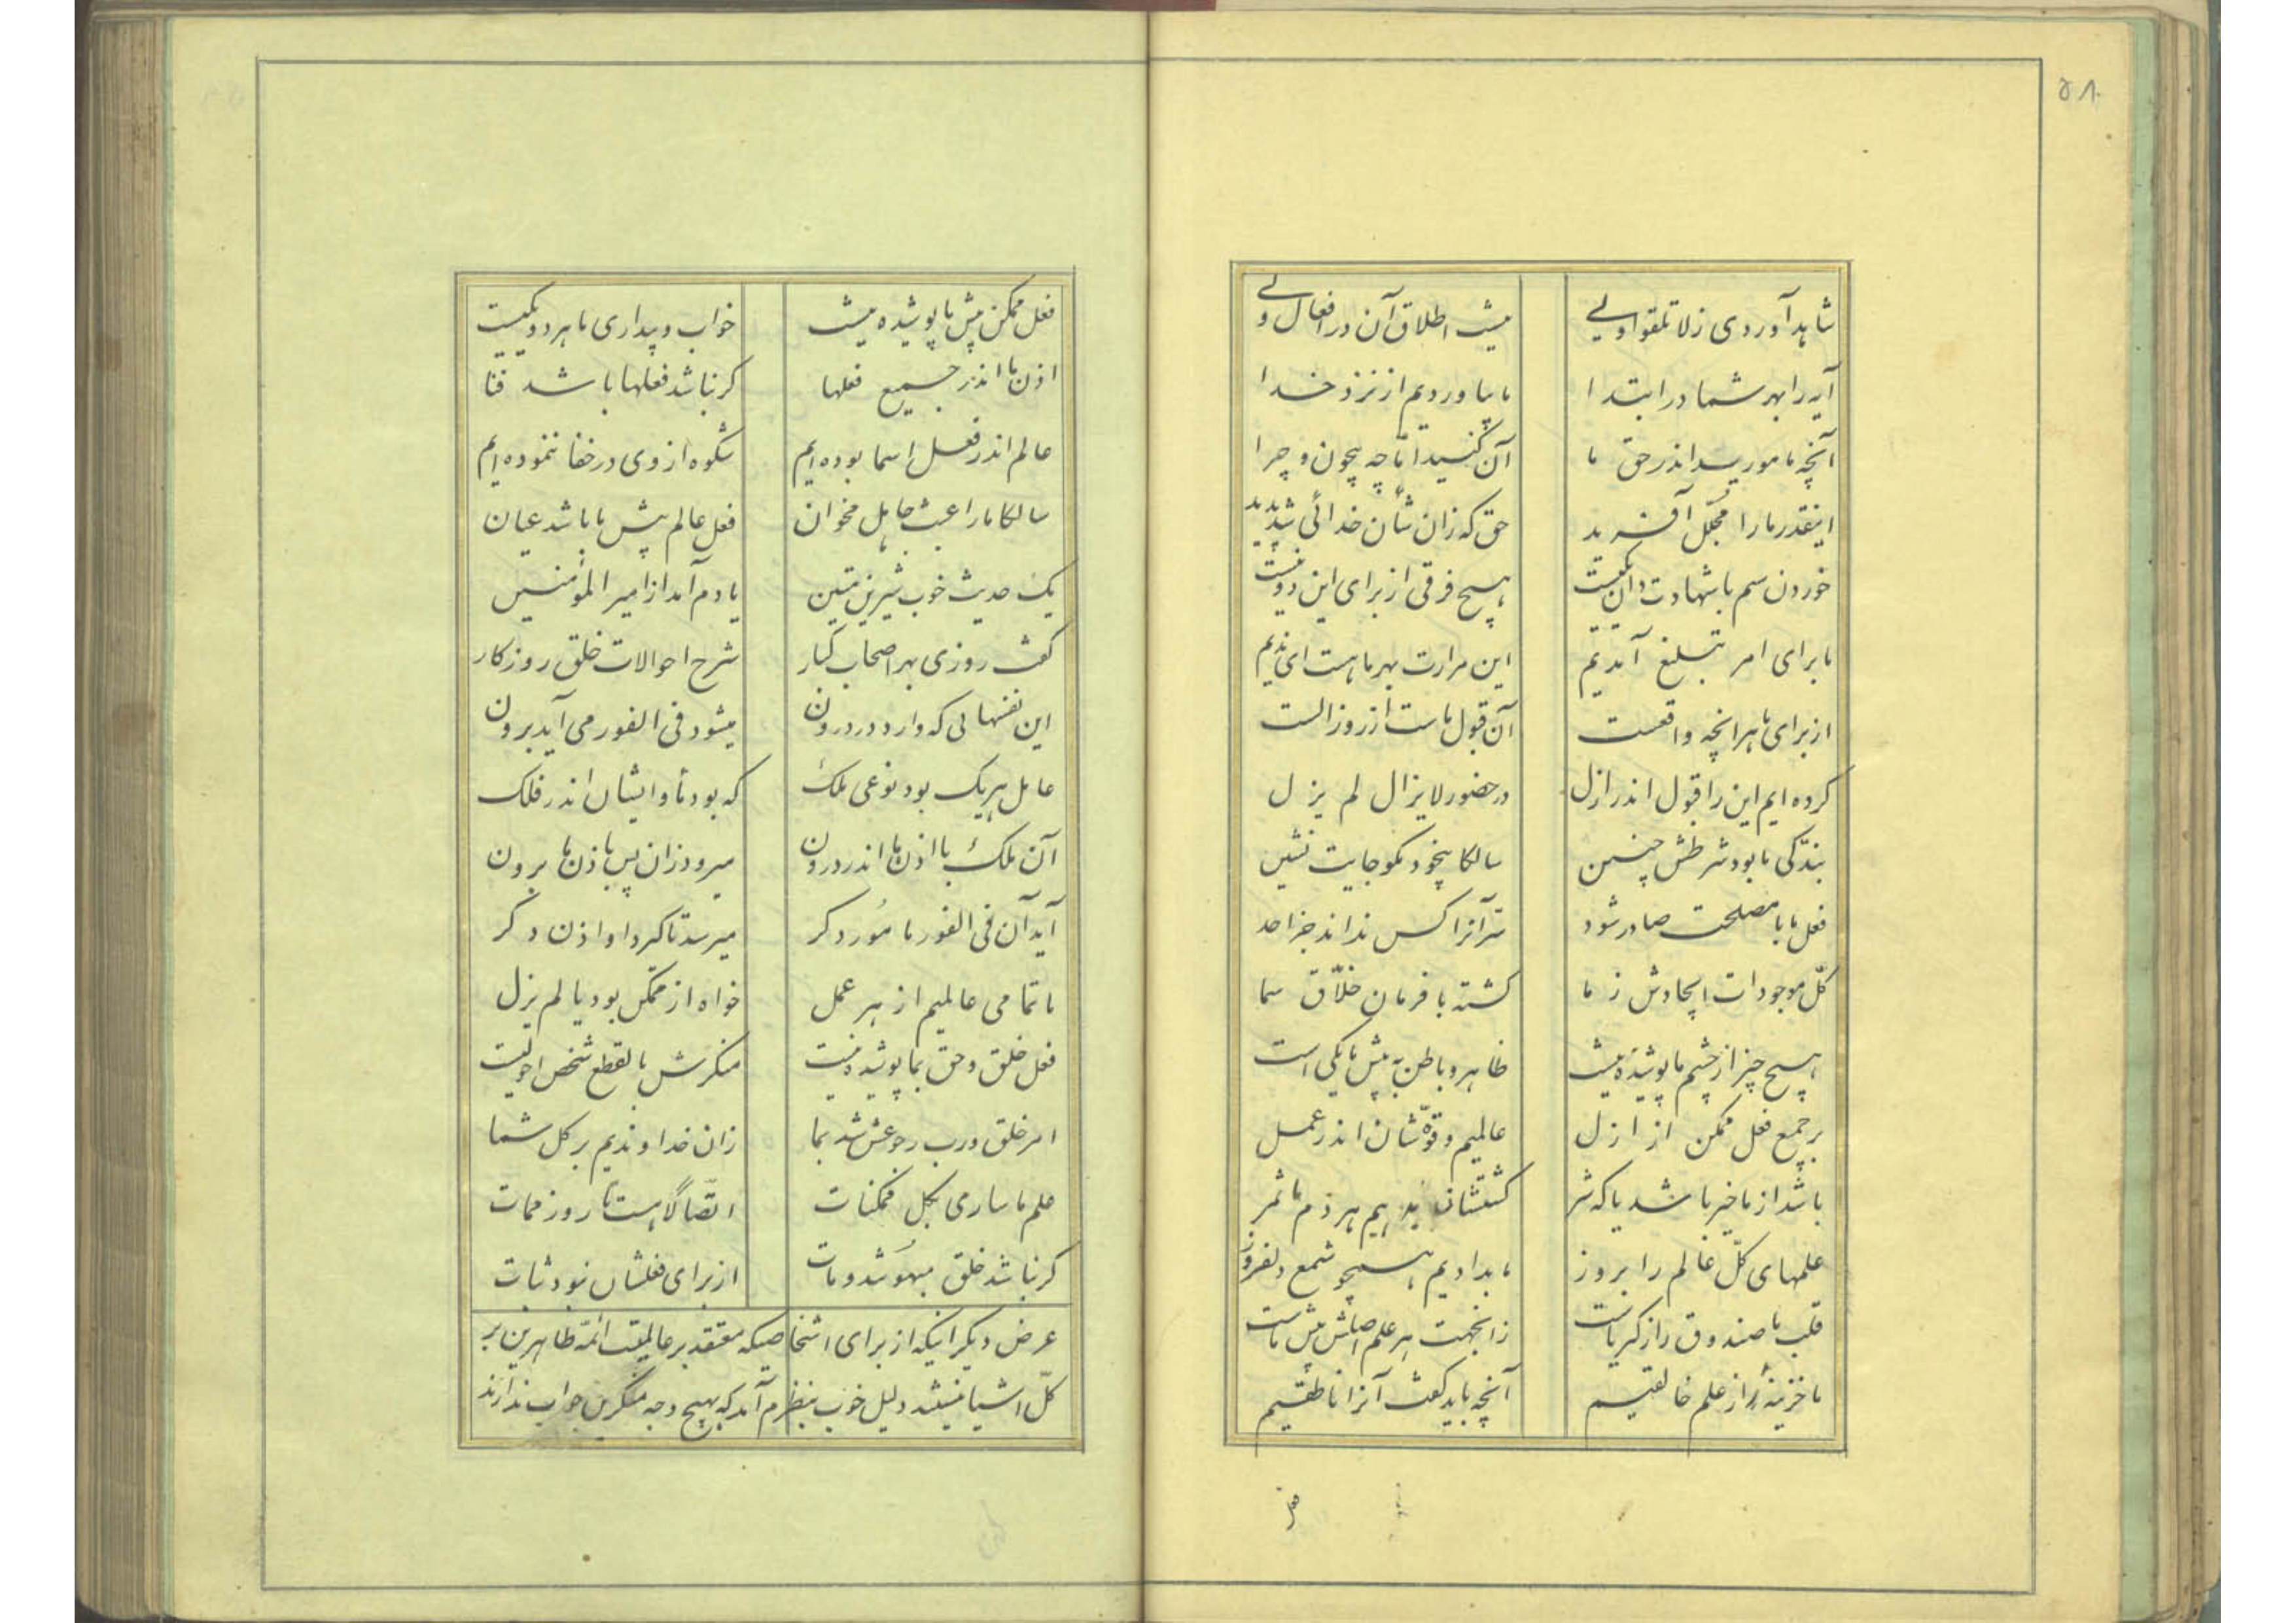 ۵۸
شاهد آوردی ز لا تلقوا ولی نیست اطلاق آن در افعال ولی
آیه را بهر شما در ابتدا ما بیاوردیم از نزد خدا
آنچه مامورید اندر حق ما آن کنید اما چه بیچون و چرا
اینقدر ما را مجلل آفرید حق که زان شأن خدائی شد پدید
خوردن سم با شهادت دان یکیست هیچ فرقی از برای این دو نیست
ما برای امر تبلیغ آمدیم این مرارت بهر ما هست ای ندیم
از برای ما هر انچه واقعست آن قبول ماست از روز الست
کرده ایم این را قبول اندر ازل در حضور لایزال لم یزل
بندگی ما بود شرطش چنین سالکا بیخود مگو جایت نشین
فعل ما با مصلحت صادر شود سر آنرا کس نداند جز احد
کل موجودات ایجادش ز ما گشته با فرمان خلاق سما
هیچ چیز از چشم ما پوشیده نیست ظاهر و باطن به پیش ما یکی است
بر جمیع فعل ممکن از ازل عالمیم و قوهٔشان اندر عمل
باشد از ما خیر باشد یا که شر کشتشان بدهیم هر دم ما ثمر
علمهای کل عالم را بروز ما بدادیم همچو شمع دلفروز
قلب ما صندوق راز کبریاست زانجهت هر علم اصلش پیش ماست
ما خزینهٔ راز علم خالقیم آنچه باید گفت آنرا ناطقیم
فعل
فعل ممکن پیش ما پوشیده نیست خواب و بیداری ما هر دو یکیست
اذن ما اندر جمیع فعلها گر نباشد فعلها باشد فنا
عالم اندر فعل اسما بوده ایم شکوه از وی در خفا ننموده ایم
سالکا ما را عبث جاهل مخوان فعل عالم پیش ما باشد عیان
یک حدیث خوب شیرین متین یادم آمد از امیر المؤمنین
گفت روزی بهر اصحاب کبار شرح احوالات خلق روزگار
این نفسهائی که وارد در درون میشود فی الفور می آید برون
عامل هر یک بود نوعی ملک که بود مأوا ایشان اندر فلک
آن ملک با اذن ما اندر درون میرود زان پس باذن ما برون
آید آن فی الفور مامور دگر میرسد تا گیرد او اذن دگر
ما تمامی عالمیم از هر عمل خواه از ممکن بود یا لم یزل
فعل خلق و حق بما پوشیده نیست منکرش بالقطع شخص احولیست
امر خلق و رب رجوعش شد بما زان خداوندیم بر کل شما
علم ما ساری بکل ممکنات اتصالا هست تا روز ممات
گر نباشد خلق مبهوتند و مات از برای فعلشان نبود ثبات
عرض دیگر اینکه از برای اشخاصیکه معتقد بر عالمیت ائمه طاهرین بر
کل اشیا نیستند دلیل خوب بنظرم آمد که بهیچ وجه منکرین جواب ندارند